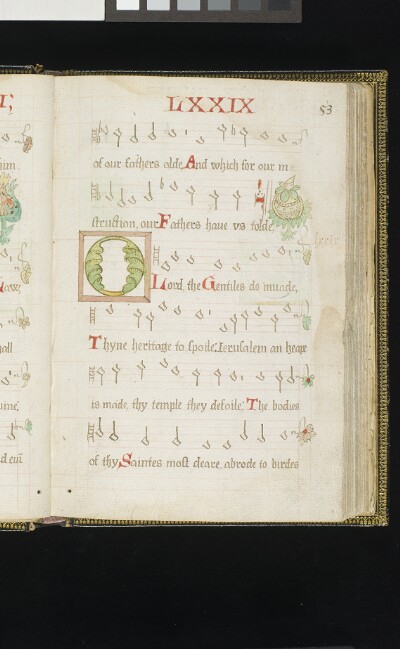 LXXIX
53
of our fathers olde. And which for our in
struction, our Fathers haue vs tolde.
O
Lord, the Gentiles do inuade,
Thyne heritage to spoile: Ierusalem an heape
is made, thy temple they defoile. The bodies
of thy Saintes most deare, abrode to birdes